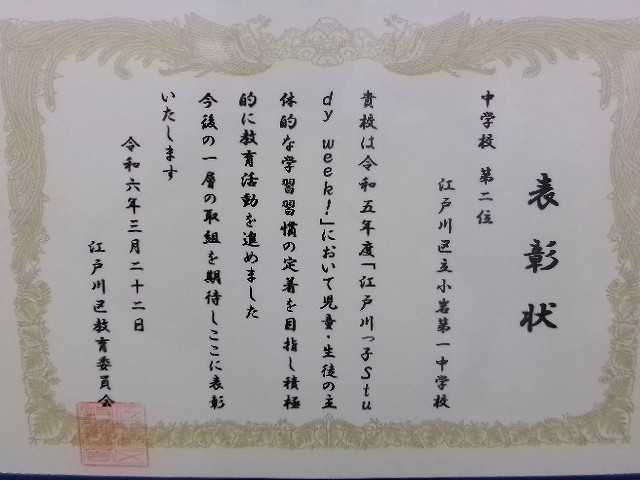 表彰状
中学校 第二位
江戸川区立小岩第一中学校
貴校は令和五年度「江戸川っ子Stu
dy week!」において児童・生徒の主
体的な学習習慣の定着を目指し積極
的に教育活動を進めました
今後の一層の取組を期待しここに表彰
いたします
令和六年三月二十二日
江戸川区教育委員会